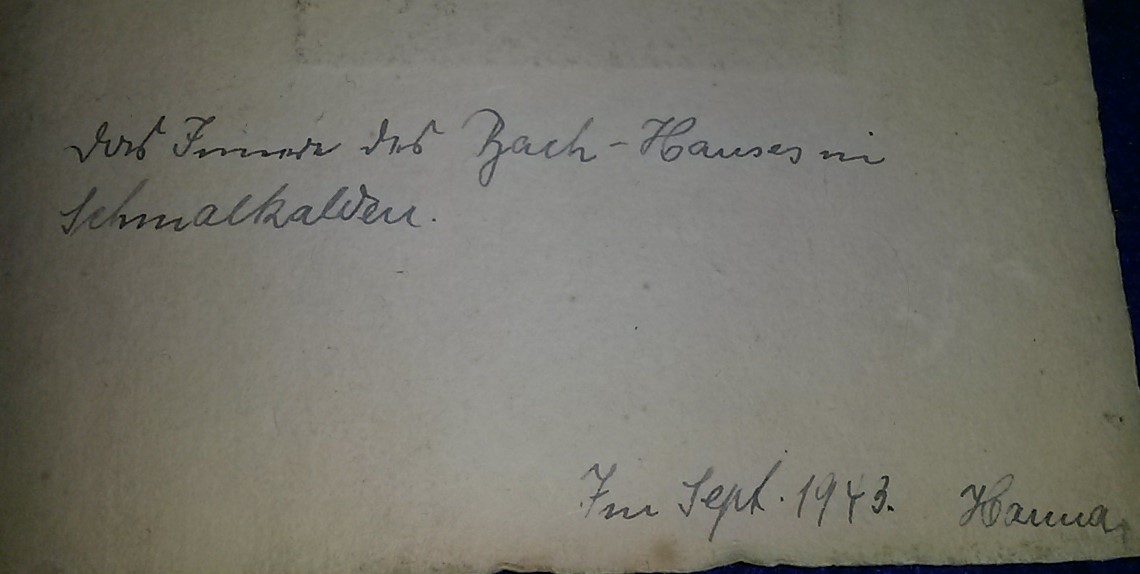 Das Innere des Bach-Hauses in
Schmalkalden.
Im Sept. 1943. Hanna